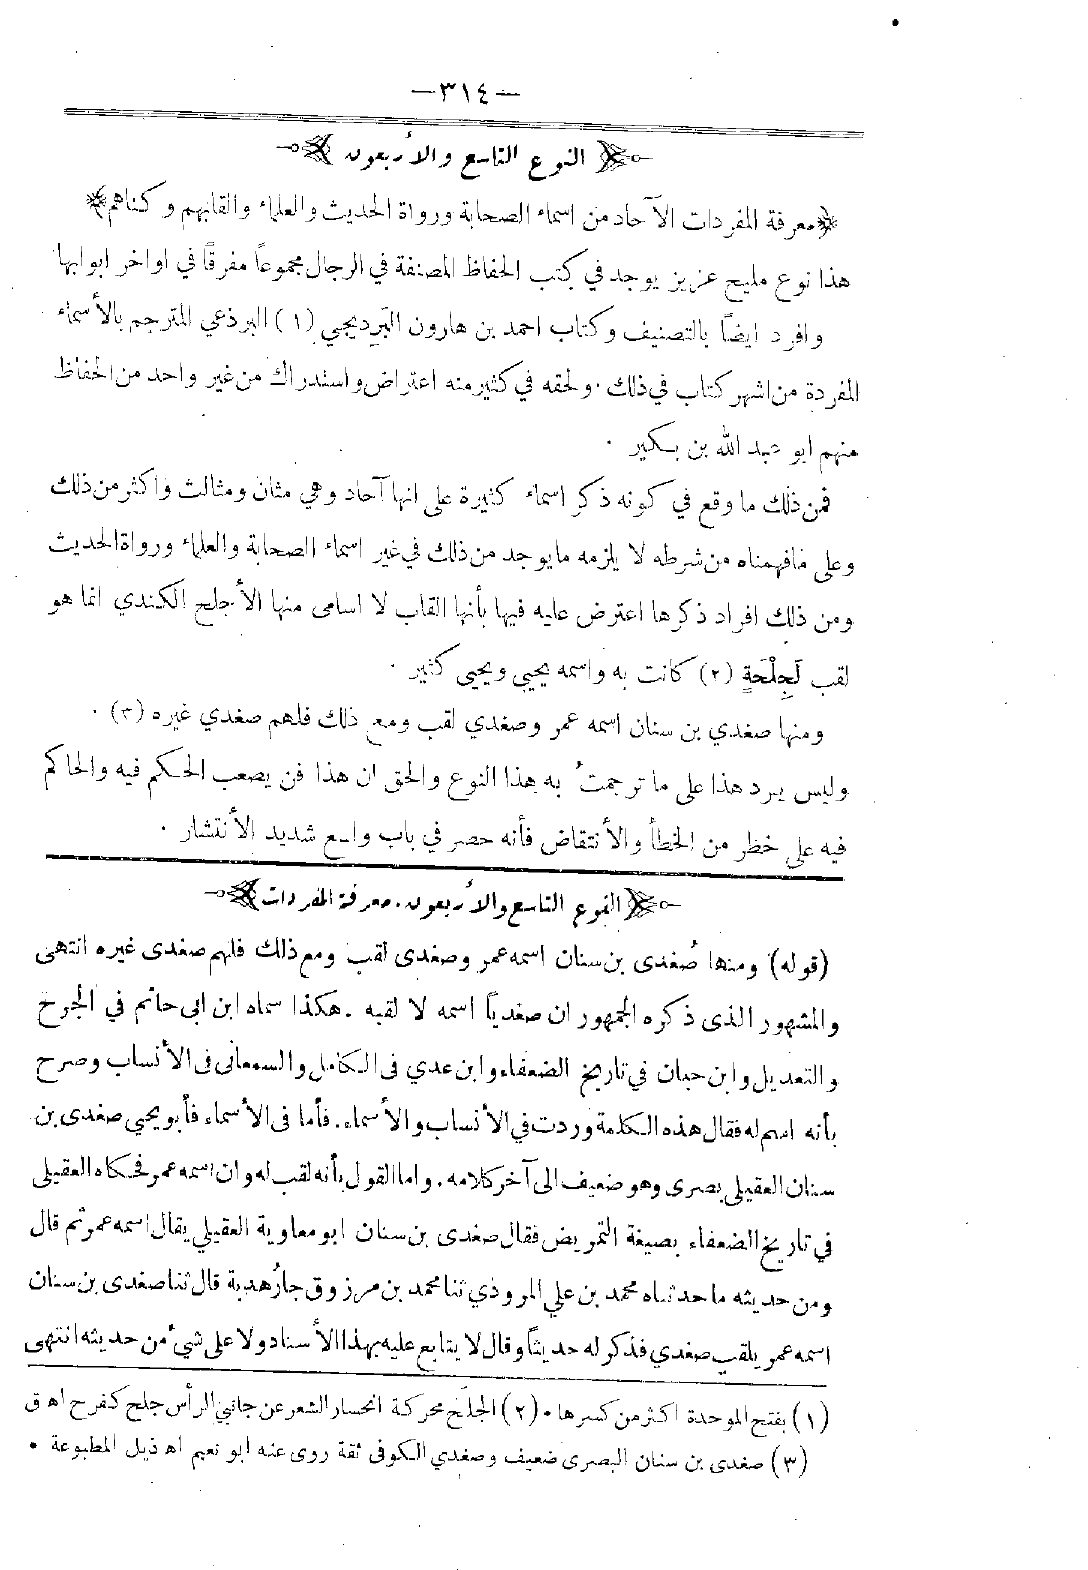 —٣١٤—
النوع التاسع والأربعون
﴿معرفة المفردات الآحاد من اسماء الصحابة ورواة الحديث والعلماء والقابهم وكناهم﴾
هذا نوع مليح عزيز يوجد في كتب الحفاظ المصنفة في الرجال مجموعاً مفرقاً في اواخر ابوابها
وافرد ايضاً بالتصنيف وكتاب احمد بن هارون البَرديجي (١) البرذعي المترجم بالأسماء
المفردة من اشهر كتاب في ذلك . ولحقه في كثير منه اعتراض واستدراك من غير واحد من الحفاظ
منهم ابو عبد الله بن بكير .
فمن ذلك ما وقع في كونه ذكر اسماء كثيرة على انها آحاد وهي مثان ومثالث واكثر من ذلك
وعلى مافهمناه من شرطه لا يلزمه ما يوجد من ذلك في غير اسماء الصحابة والعلماء ورواة الحديث
ومن ذلك افراد ذكرها اعترض عليه فيها بأنها القاب لا اسامى منها الأجلح الكندي انما هو
لقب لَجِلْحَةٍ (٢) كانت به واسمه يحيى ويحيى كثير .
ومنها صغدي بن سنان اسمه عمر وصغدي لقب ومع ذلك فلهم صغدي غيره (٣) .
وليس يرد هذا على ما ترجمتُ به هذا النوع والحق ان هذا فن يصعب الحكم فيه والحاكم
فيه على خطر من الخطأ والأنتقاض فأنه حصر في باب واسع شديد الأنتشار .
النوع التاسع والأربعون . معرفة المفردات
(قوله) ومنها صُغدى بن سنان اسمه عمر وصغدى لقب ومع ذلك فلهم صغدى غيره انتهى
والمشهور الذى ذكره الجمهور ان صغدياً اسمه لا لقبه . هكذا سماه ابن ابى حاتم في الجرح
والتعديل وابن حبان في تاريخ الضعفاء وابن عدي فى الكامل والسمعانى فى الأنساب وصرح
بأنه اسم له فقال هذه الكلمة وردت في الأنساب والأسماء . فأما فى الأسماء فأبو يحيى صغدى بن
سنان العقيلى بصرى وهو ضعيف الى آخر كلامه . واما القول بأنه لقب له وان اسمه عمر فحكاه العقيلى
في تاريخ الضعفاء بصيغة التمريض فقال صغدى بن سنان ابو معاوية العقيلي يقال اسمه عمر ثم قال
ومن حديثه ما حدثناه محمد بن علي المروذي ثنا محمد بن مرزوق جارُ هدبة قال ثنا صغدى بن سنان
اسمه عمر يلقب صغدي فذكر له حديثاً وقال لا يتابع عليه بهذا الأسناد ولا على شيء من حديثه انتهى
(١) بفتح الموحدة اكثر من كسرها . (٢) الجلَح محركة انحسار الشعر عن جانبي الرأس جلح كفرح اه ق
(٣) صغدى بن سنان البصرى ضعيف وصغدي الكوفى ثقة روى عنه ابو نعيم اه ذيل المطبوعة .